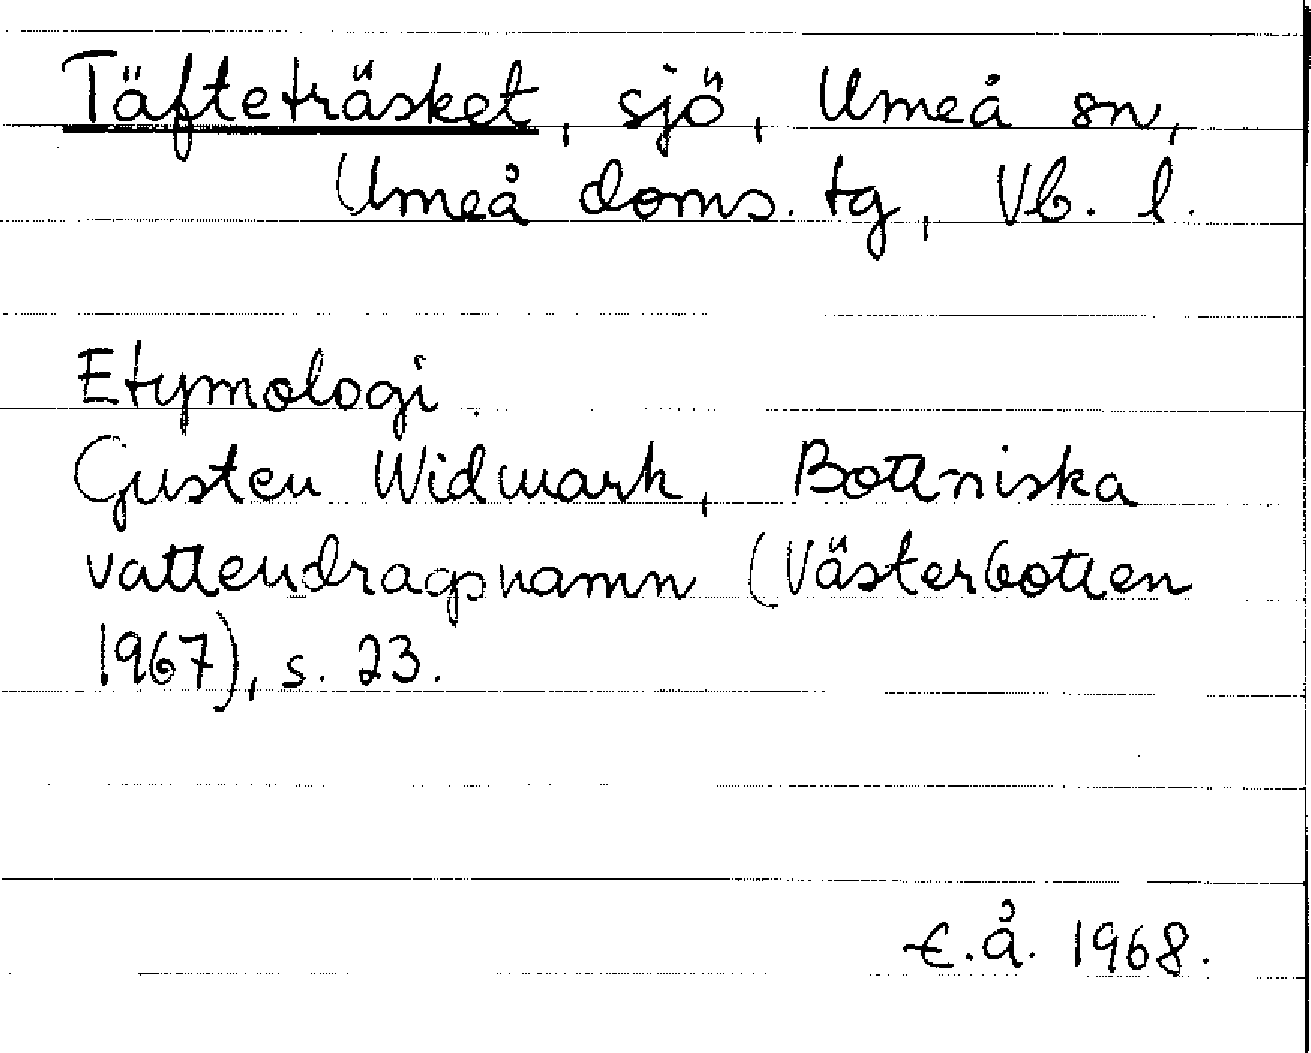 Täfteträsket, sjö, Umeå sn,
Umeå doms. tg, Vb. l.
Etymologi
Gusten Widmark, Bottniska
vattendragsnamn (Västerbotten
1967), s. 23.
E.Å. 1968.